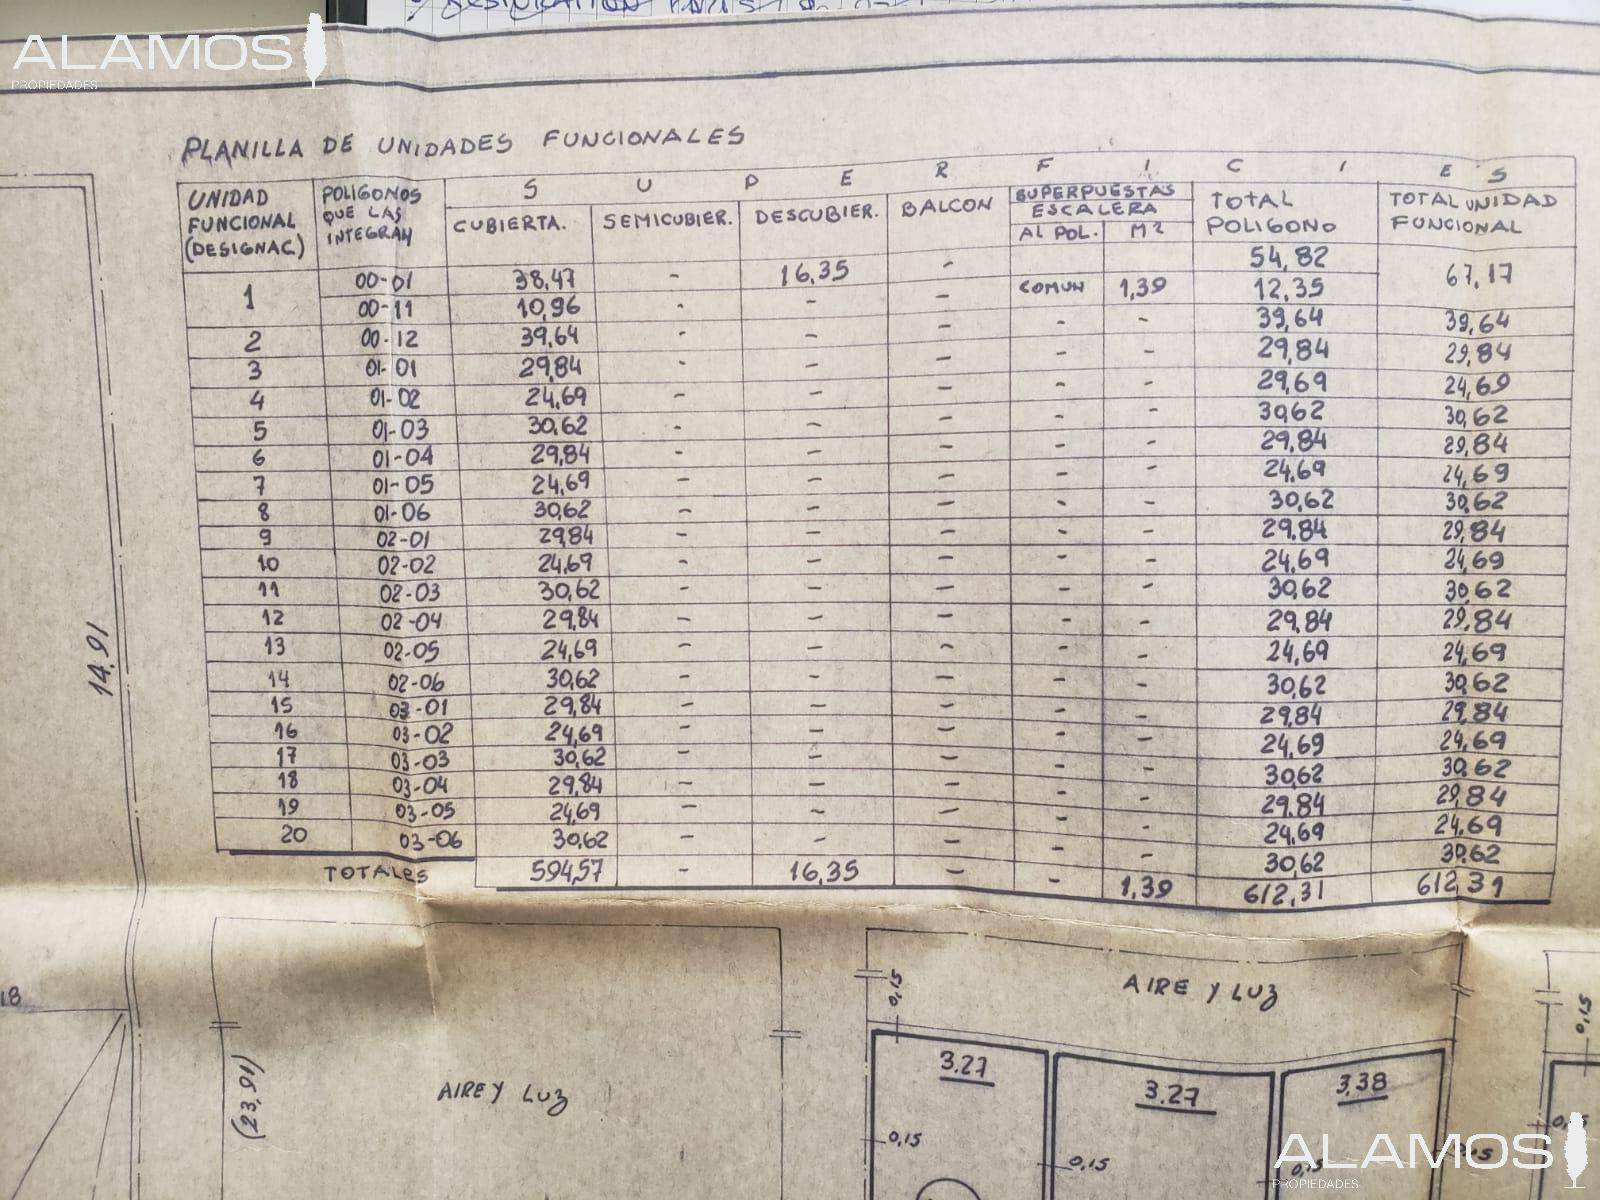 ALAMOS
PROPIEDADES
PLANILLA DE UNIDADES FUNCIONALES
UNIDAD FUNCIONAL (DESIGNAC.) POLIGONOS QUE LAS INTEGRAN S U P E R F I C I E S
CUBIERTA. SEMICUBIER. DESCUBIER. BALCON SUPERPUESTAS ESCALERA AL POL. M2 TOTAL POLIGONO TOTAL UNIDAD FUNCIONAL
1 00-01 38,47 - 16,35 - 54,82 67,17
00-11 10,96 - - - COMUN 1,39 12,35
2 00-12 39,64 - - - - - 39,64 39,64
3 01-01 29,84 - - - - - 29,84 29,84
4 01-02 24,69 - - - - - 29,69 24,69
5 01-03 30,62 - - - - - 30,62 30,62
6 01-04 29,84 - - - - - 29,84 29,84
7 01-05 24,69 - - - - - 24,69 24,69
8 01-06 30,62 - - - - - 30,62 30,62
9 02-01 29,84 - - - - - 29,84 29,84
10 02-02 24,69 - - - - - 24,69 24,69
11 02-03 30,62 - - - - - 30,62 30,62
12 02-04 29,84 - - - - - 29,84 29,84
13 02-05 24,69 - - - - - 24,69 24,69
14 02-06 30,62 - - - - - 30,62 30,62
15 03-01 29,84 - - - - - 29,84 29,84
16 03-02 24,69 - - - - - 24,69 24,69
17 03-03 30,62 - - - - - 30,62 30,62
18 03-04 29,84 - - - - - 29.84 29,84
19 03-05 24,69 - - - - - 24,69 24,69
20 03-06 30,62 - - - - - 30,62 30,62
TOTALES 594,57 - 16,35 - - 1,39 612,31 612,31
14,91
18
(23,91)
AIRE Y LUZ
0,15
AIRE Y LUZ
0,15
3.27
3.27
3,38
0,15
0,15
0,15
ALAMOS
PROPIEDADES